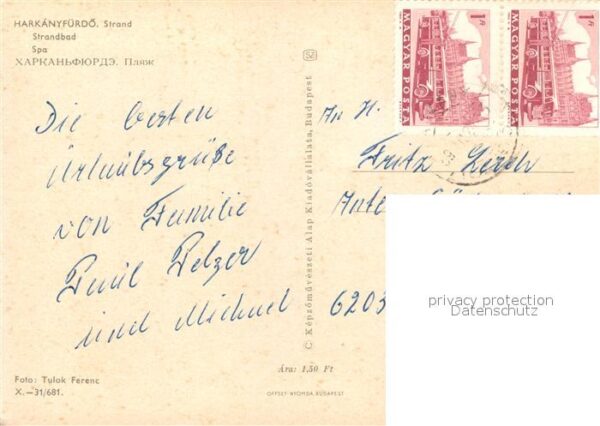 HARKÁNYFÜRDŐ. Strand
Strandbad
Spa
ХАРКАНЬФЮРДЭ. Пляж
Die besten
Urlaubsgrüße
von Familie
Emil Pelzer
und Michael
Foto: Tulok Ferenc
X.—31/681.
© Képzőművészeti Alap Kiadóvállalata, Budapest
Ára: 1,50 Ft
OFFSET-NYOMDA, BUDAPEST
1Ft
MAGYAR POSTA
1Ft
MAGYAR POSTA
An H.
Fritz Lerch
Unte
6203
privacy protection
Datenschutz